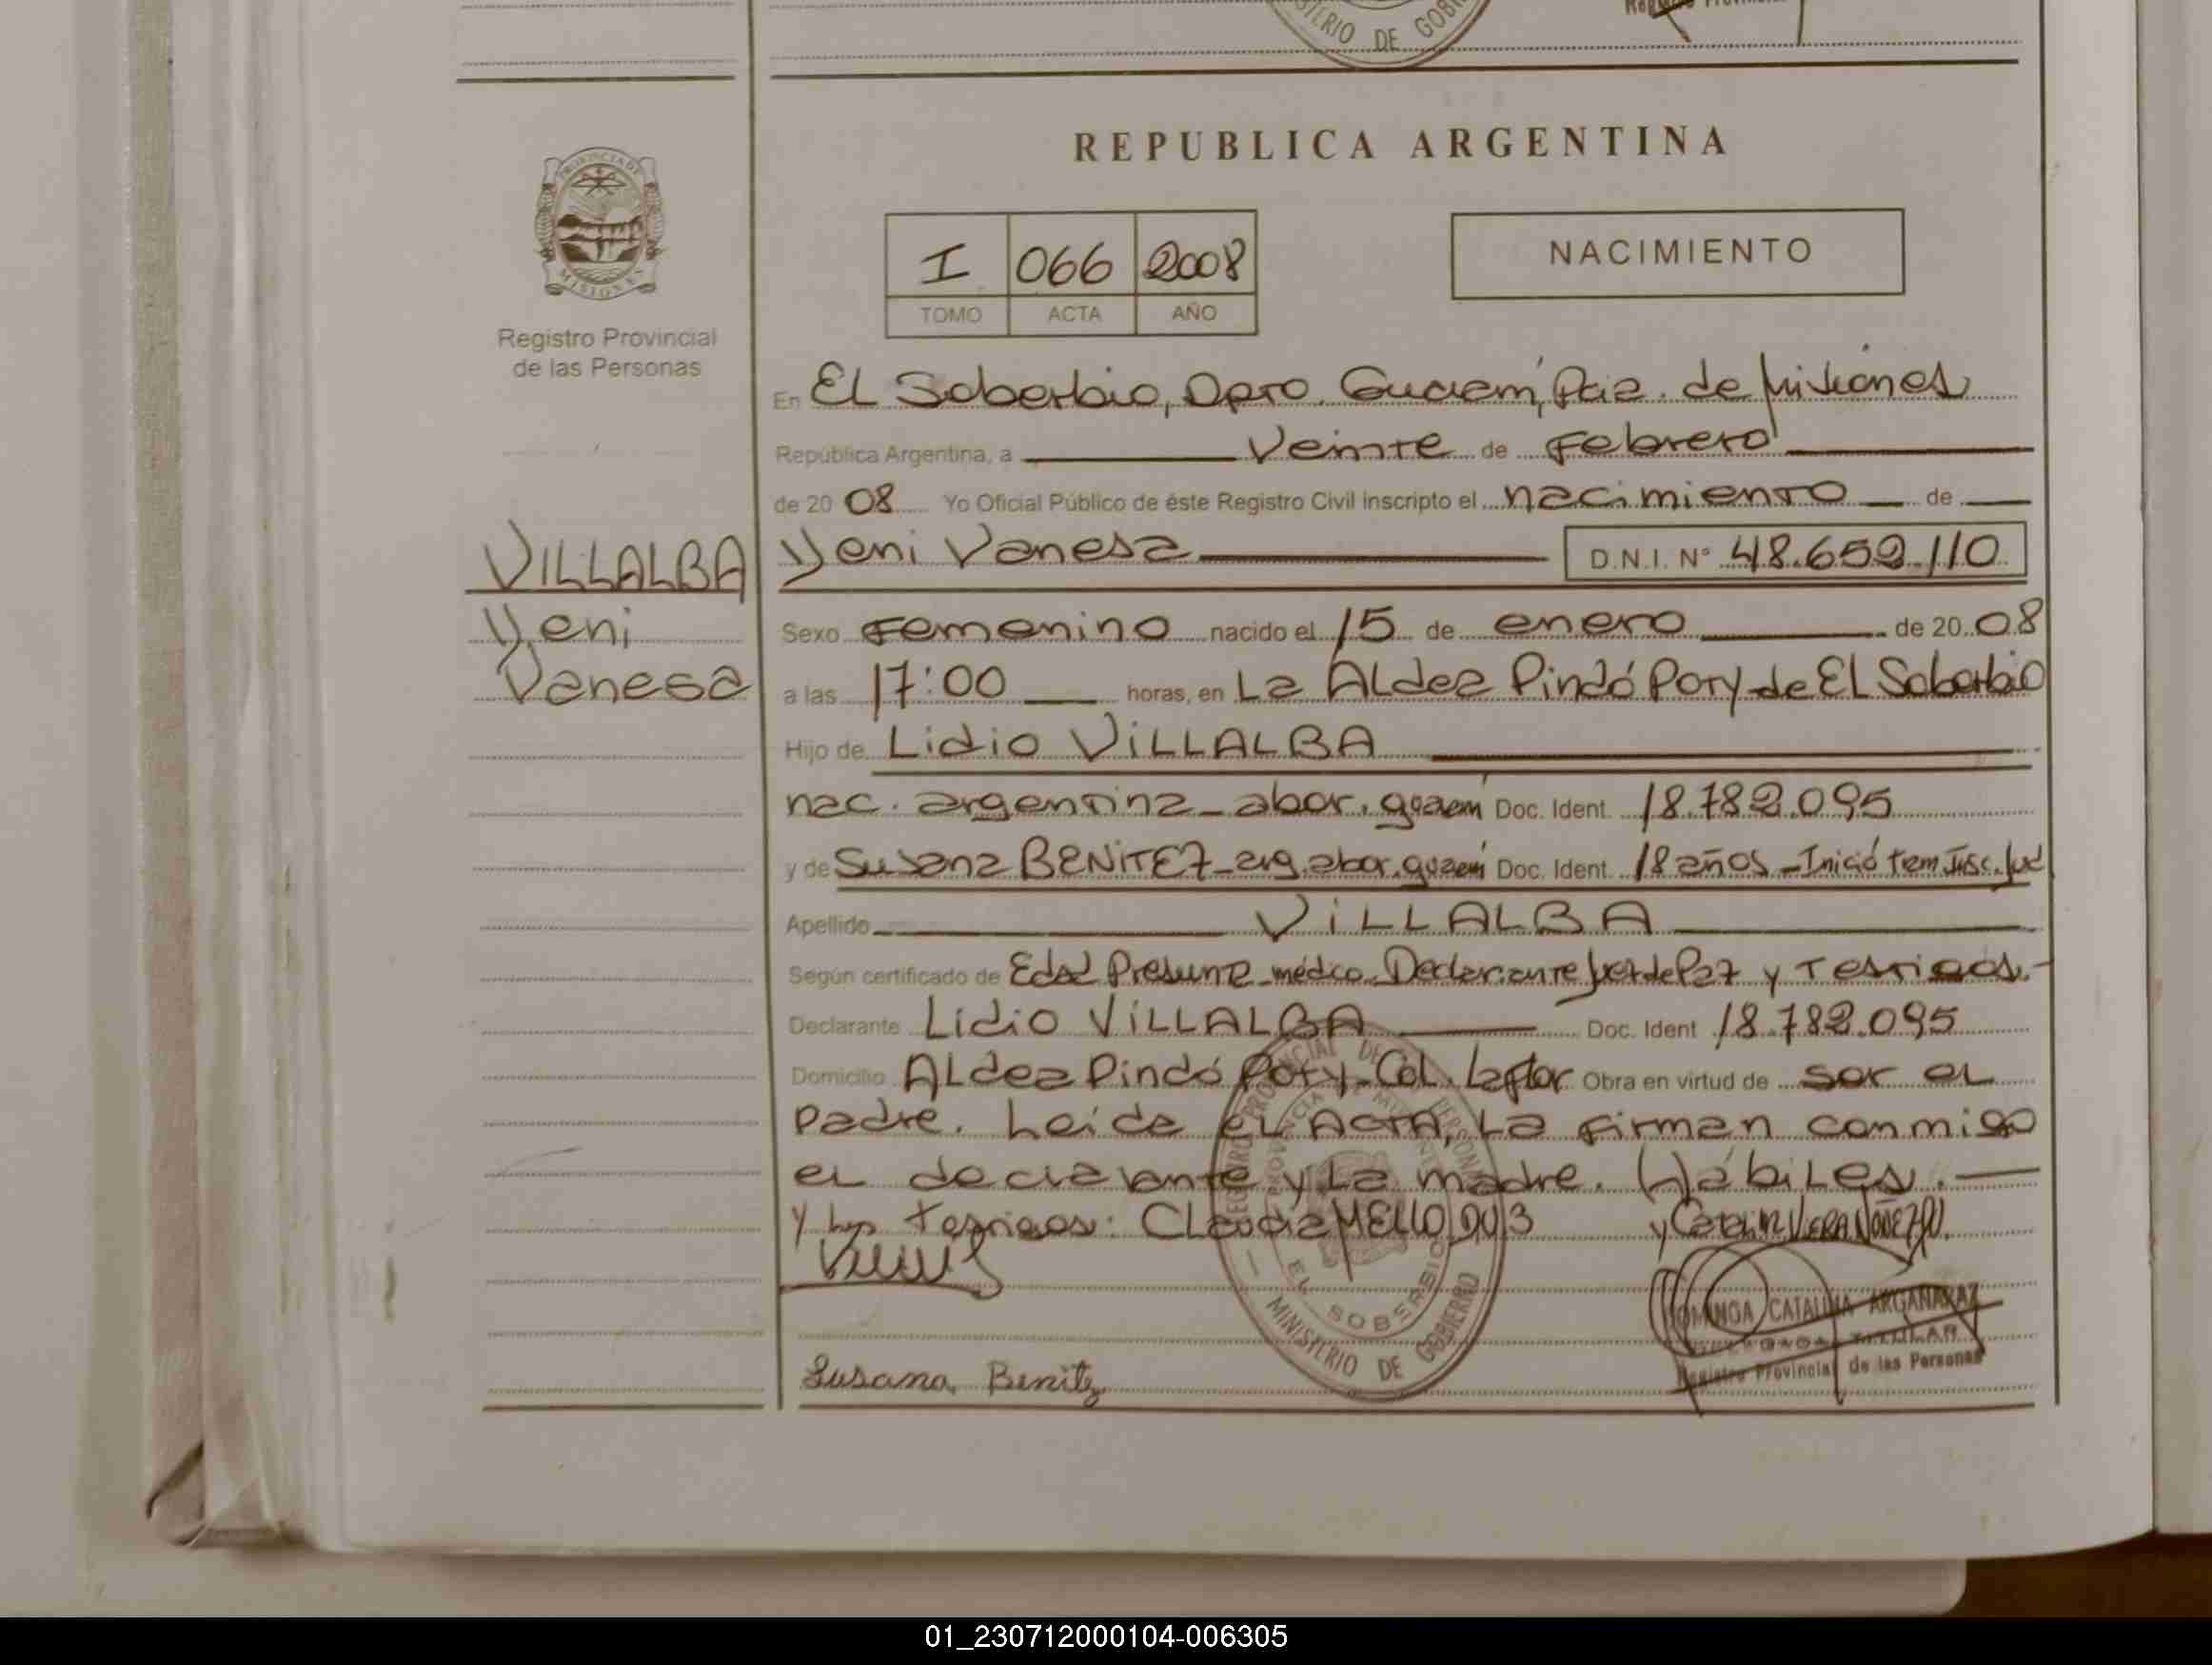 MINISTERIO DE GOBIERNO
REPUBLICA ARGENTINA
PROVINCIA DE
MISIONES
I 066 2008
TOMO ACTA AÑO
NACIMIENTO
Registro Provincial
de las Personas
En EL Soberbio, Dpto. Guaraní, Pcia. de Misiones
República Argentina, a Veinte de Febrero
de 20 08 Yo Oficial Público de éste Registro Civil inscripto el nacimiento de
VILLALBA
Yeni
Vanesa
Yeni Vanesa D.N.I. Nº 48.652.110
Sexo Femenino nacido el 15 de enero de 20 08
a las 17:00 horas, en La ALdea Pindó Poty de EL Soberbio
Hijo de Lidio ViLLALBA
nac. argentina - abor. guaraní Doc. Ident. 18.782.095
y de Susana BENITEZ - arg. abor. guaraní Doc. Ident. 18 años - Inició trám. Insc. Jud
Apellido ViLLALBA
Según certificado de Edad Presunta médico. Declar. ante Juez de Paz y Testigos.-
Declarante Lidio ViLLALBA Doc. Ident 18.782.095
Domicilio ALdea Pindó Poty - Col. La flor Obra en virtud de ser el
padre. Leída el ACTA, La firman conmigo
el declarante y La madre. Hábiles.
y los testigos: CLaudia MELLO DU 3 y Catalina VERA NUÑEZ DU.
Susana Benitez
DOMINGA CATALINA ARGAÑARAZ
DELEGADA TITULAR
Registro Provincial de las Personas
REGISTRO PROVINCIAL DE LAS PERSONAS
PROVINCIA DE MISIONES
EL SOBERBIO
MINISTERIO DE GOBIERNO
01_230712000104-006305